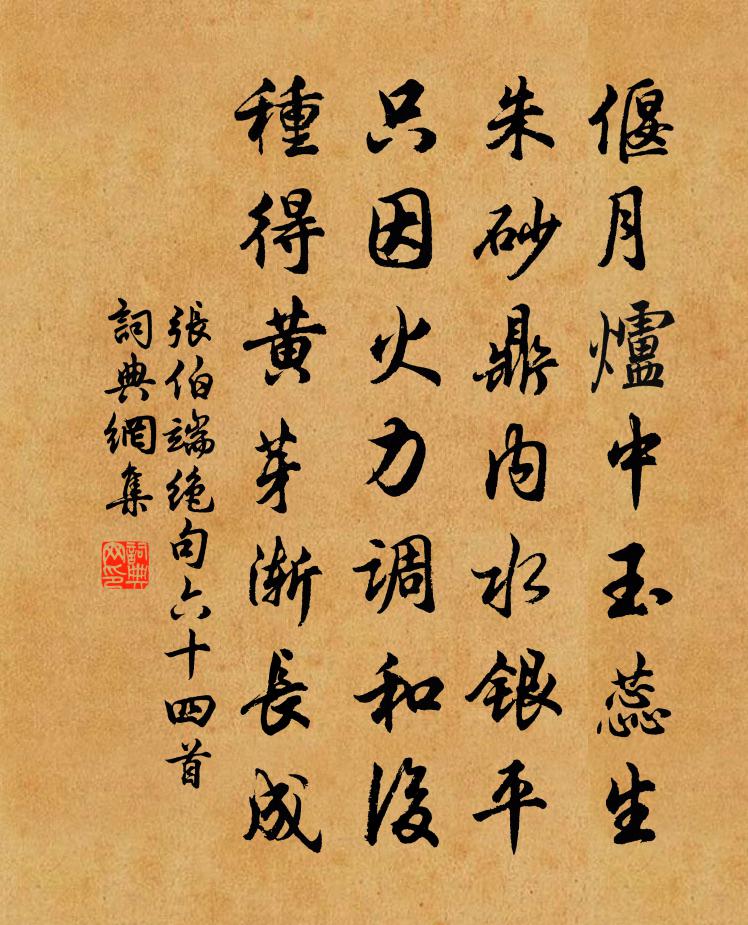 偃月爐中玉蕊生
朱砂鼎内水銀平
只因火力調和後
種得黄芽漸長成
張伯端絶句六十四首
詞典網集
詞典網印